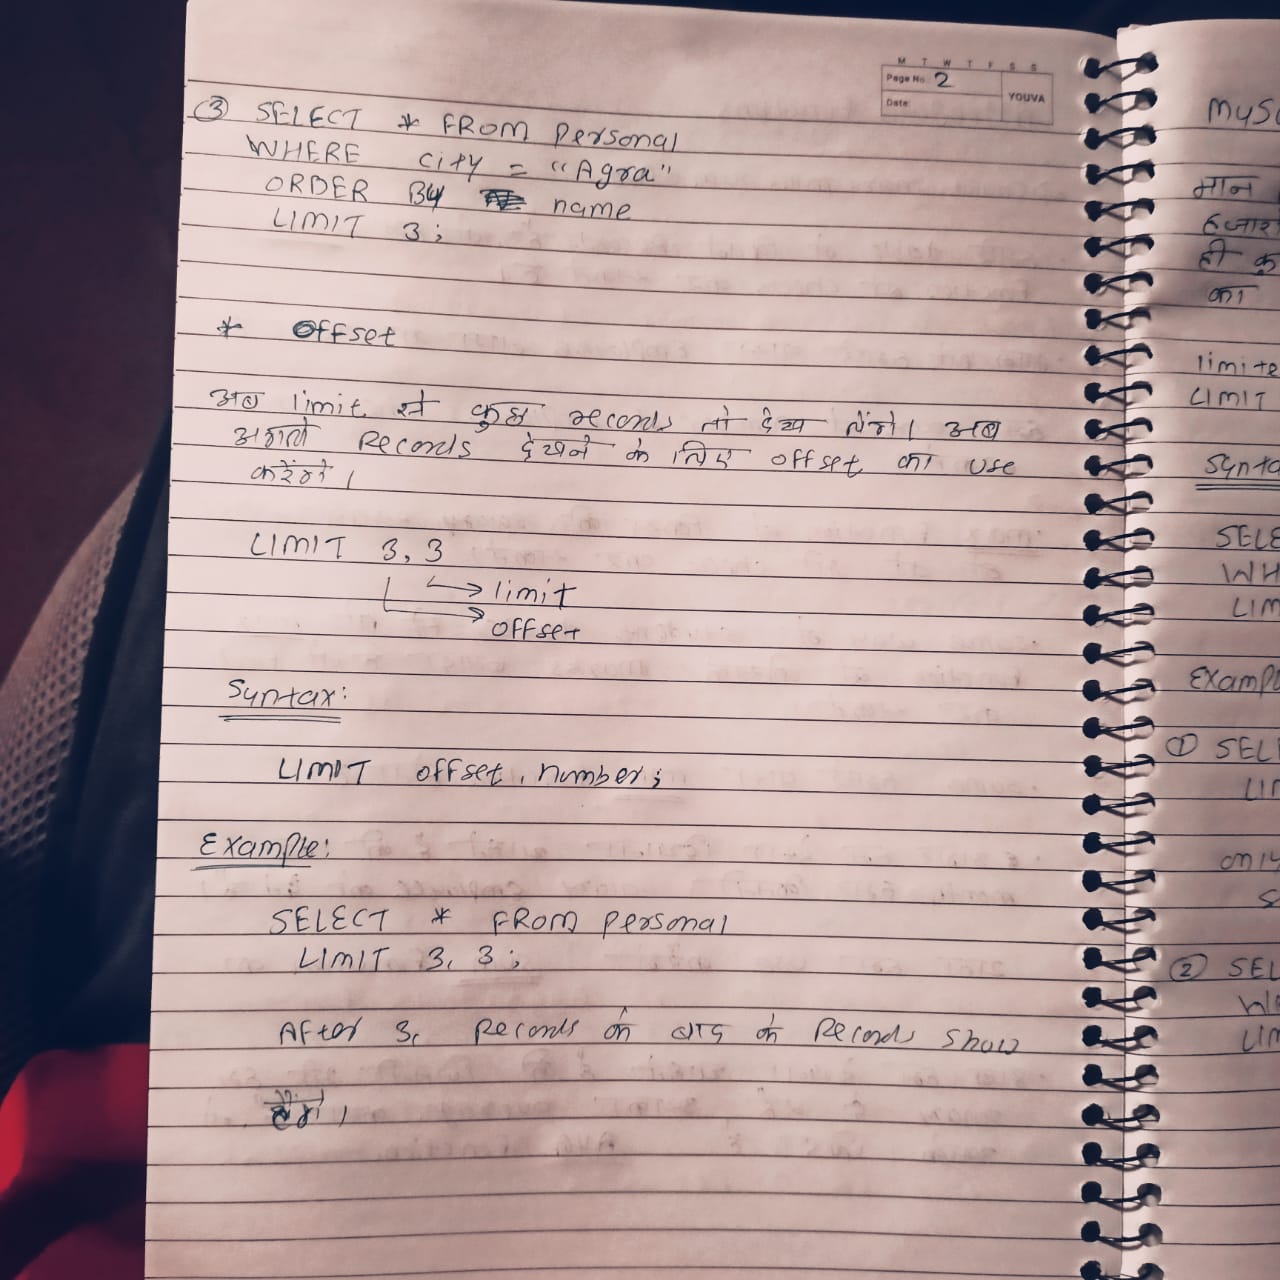 M T W T F S S
Page No. 2
Date:
YOUVA
③ SELECT * FROM Personal
WHERE city = "Agra"
ORDER BY name
LIMIT 3;
* Offset
अब limit से कुछ records तो देख लेंगे। अब
अगले Records देखने के लिए offset का use
करेंगे।
LIMIT 3, 3
→ limit
→ offset
Syntax:
LIMIT offset, number;
Example:
SELECT * FROM Personal
LIMIT 3, 3;
After 3, Records के बाद के Records show
होंगे।
मान
ही
का
LIMIT
① SEL
② SEL